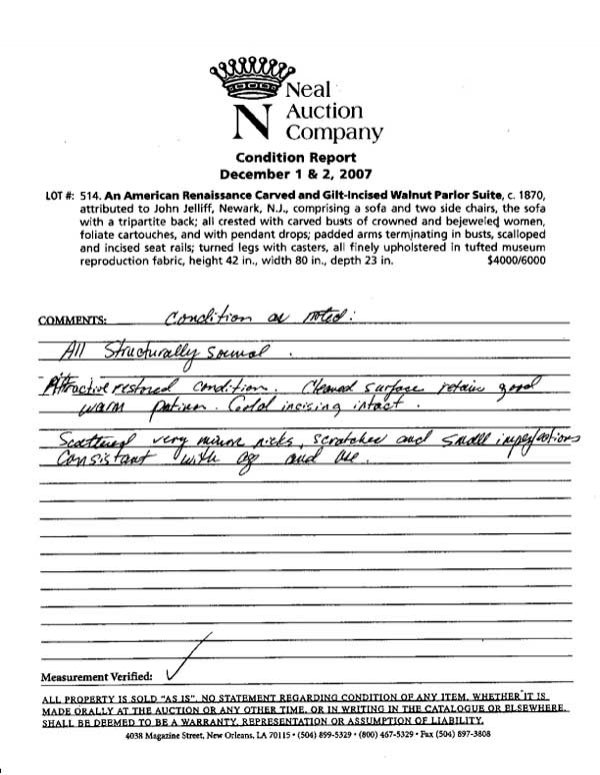 Neal
N Auction
Company
Condition Report
December 1 & 2, 2007
LOT #: 514. An American Renaissance Carved and Gilt-Incised Walnut Parlor Suite, c. 1870,
attributed to John Jelliff, Newark, N.J., comprising a sofa and two side chairs, the sofa
with a tripartite back; all crested with carved busts of crowned and bejeweled women,
foliate cartouches, and with pendant drops; padded arms terminating in busts, scalloped
and incised seat rails; turned legs with casters, all finely upholstered in tufted museum
reproduction fabric, height 42 in., width 80 in., depth 23 in. $4000/6000
COMMENTS: Condition as noted:
All Structurally sound.
Attractive restored condition. Cleaned surface retains good
warm patina. Gold incising intact.
Scattered very minor nicks, scratches and small imperfections
Consistant with age and use.
Measurement Verified: ✓
ALL PROPERTY IS SOLD "AS IS". NO STATEMENT REGARDING CONDITION OF ANY ITEM, WHETHER IT IS
MADE ORALLY AT THE AUCTION OR ANY OTHER TIME, OR IN WRITING IN THE CATALOGUE OR ELSEWHERE,
SHALL BE DEEMED TO BE A WARRANTY, REPRESENTATION OR ASSUMPTION OF LIABILITY.
4038 Magazine Street, New Orleans, LA 70115 • (504) 899-5329 • (800) 467-5329 • Fax (504) 897-3808